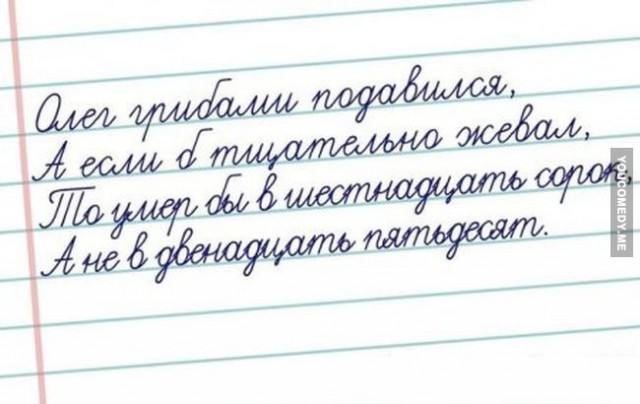 Олег грибами подавился,
А если б тщательно жевал,
То умер бы в шестнадцать сорок,
А не в двенадцать пятьдесят.
YOUCOMEDY.ME